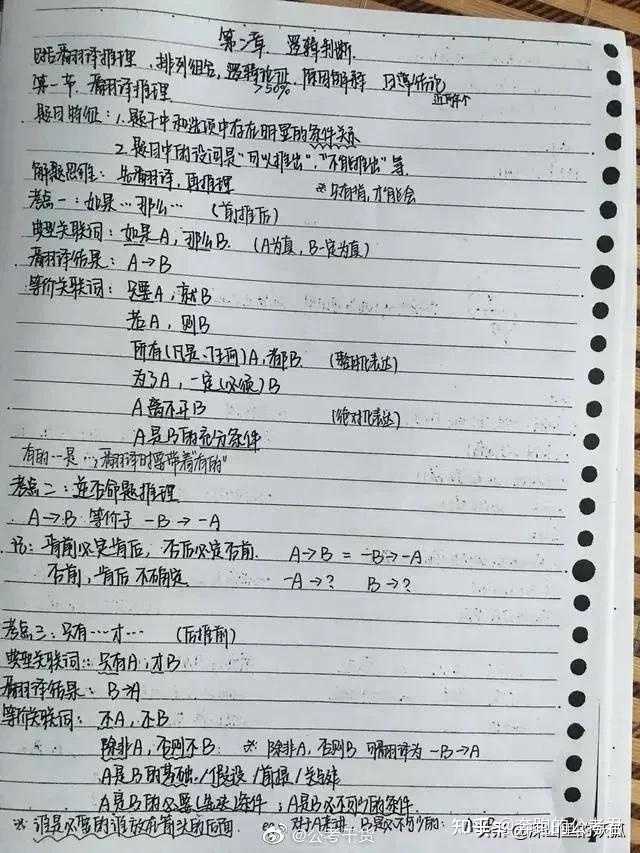 第二章 逻辑判断
包括翻译推理、排列组合，逻辑论证，原因解释 日常结论
>50%
近两年个
第一节 翻译推理
题目特征：1. 题干中和选项中存在明显的条件关系
2. 题目中的设问是“可以推出”，“不能推出”等.
解题思维：先翻译，再推理 ※ 只有肯，才能会
考点一：如果…那么… （前推后）
典型关联词：如果A，那么B. （A为真，B一定为真）
翻译结果：A→B
等价关联词：只要A，就B
若A，则B
所有(凡是、任何)A，都B. （绝对化表达）
为了A，一定(必须)B
A离不开B （绝对化表达）
A是B的充分条件
有的…是…，翻译时要带着“有的”
考点二：逆否命题推理
A→B 等价于 -B→-A
记：肯前必定肯后，否后必定否前. A→B = -B→-A
否前，肯后 不确定 -A→? B→?
考点三：只有…才… （后推前）
典型关联词：只有A，才B
翻译结果：B→A
等价关联词：不A，不B
除非A，否则不B ※ 除非A，否则B 可翻译为 -B→A
A是B的基础/假设/前提/关键
A是B的必要(必须)条件；A是B必不可少的条件.
※ 谁是必要的谁放在箭头的后面. eg. 对于A来讲，B是必不可少的：A→B
@公考干货